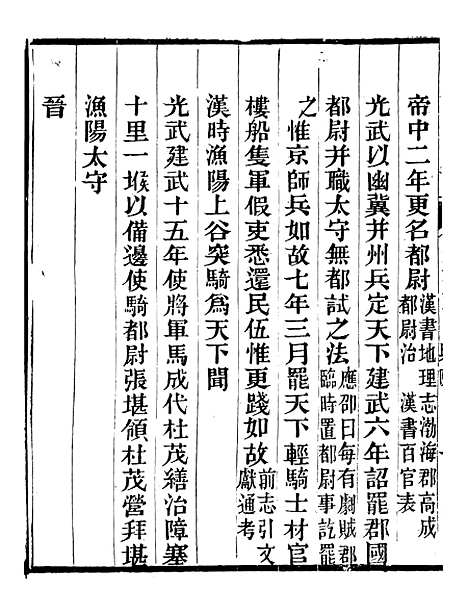 帝中二年更名都尉漢書地理志渤海郡高成都尉治 漢書百官表
光武以幽冀并州兵定天下建武六年詔罷郡國
都尉并職太守無都試之法應邵曰每有劇賊郡臨時置都尉事訖罷
之惟京師兵如故七年三月罷天下輕騎士材官
樓船隻軍假吏悉還民伍惟更踐如故前志引文獻通考
漢時漁陽上谷突騎爲天下聞
光武建武十五年使將軍馬成代杜茂繕治障塞
十里一堠以備邊使騎都尉張堪領杜茂營拜堪
漁陽太守
晉